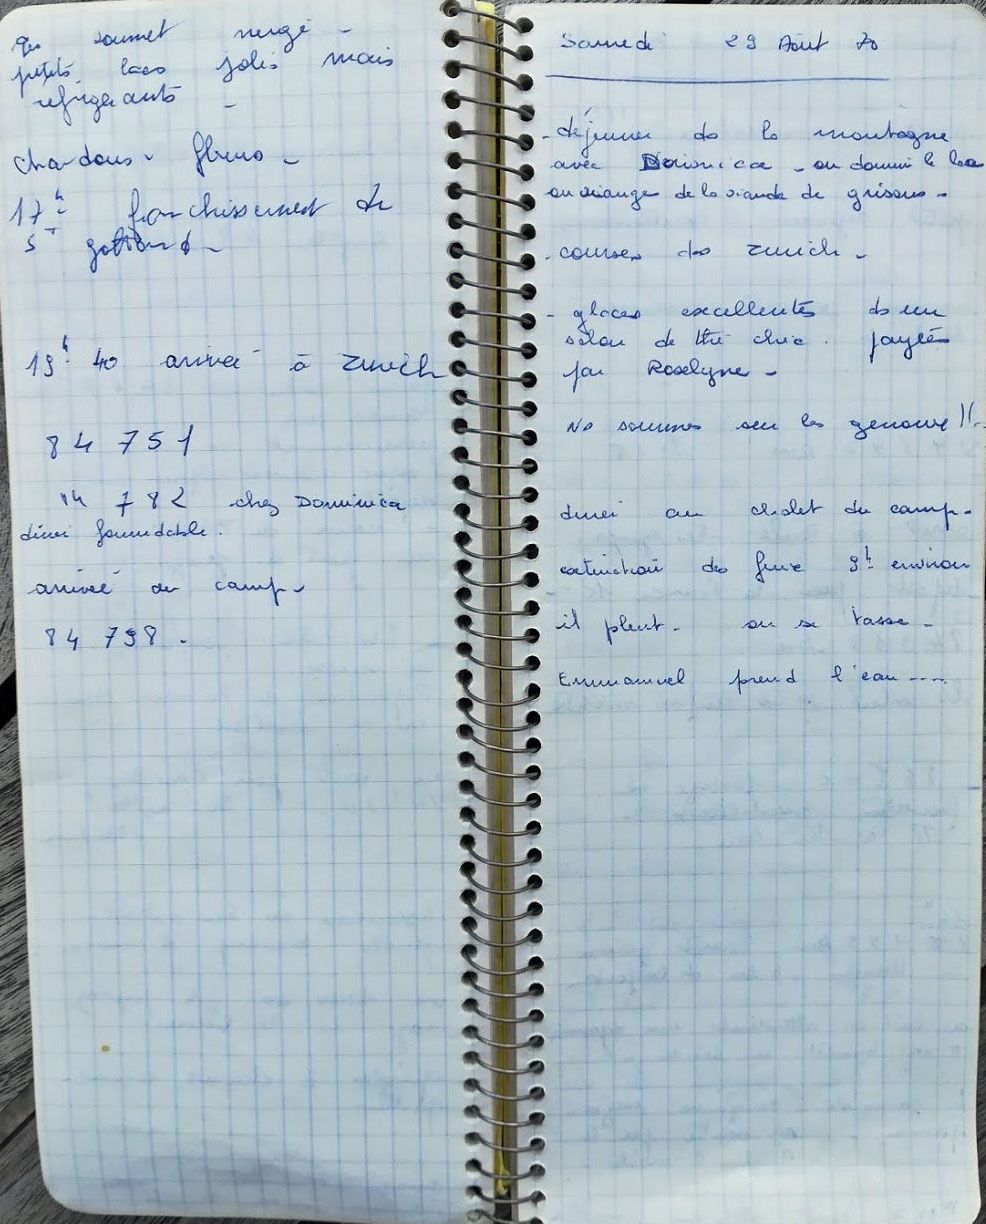 au sommet neige -
petits lacs jolis mais
réfrigérants -
chardons - fleurs -
17h franchissement du
St gothard -
19h 40 arrivée à Zurich
84 751
84 782 chez Dominica
dîner formidable.
arrivée au camp -
84 798 -
Samedi 29 Août 70
- déjeuner ds la montagne
avec Dominica - on domine le lac
on mange de la viande de grisons -
- courses ds Zurich -
- glaces excellentes ds un
salon de thé chic. payées
par Roselyne -
Ns sommes sur les genoux !!..
diner au chalet du camp -
extinction des feux 9h environ
il pleut - on se tasse -
Emmanuel prend l'eau ----